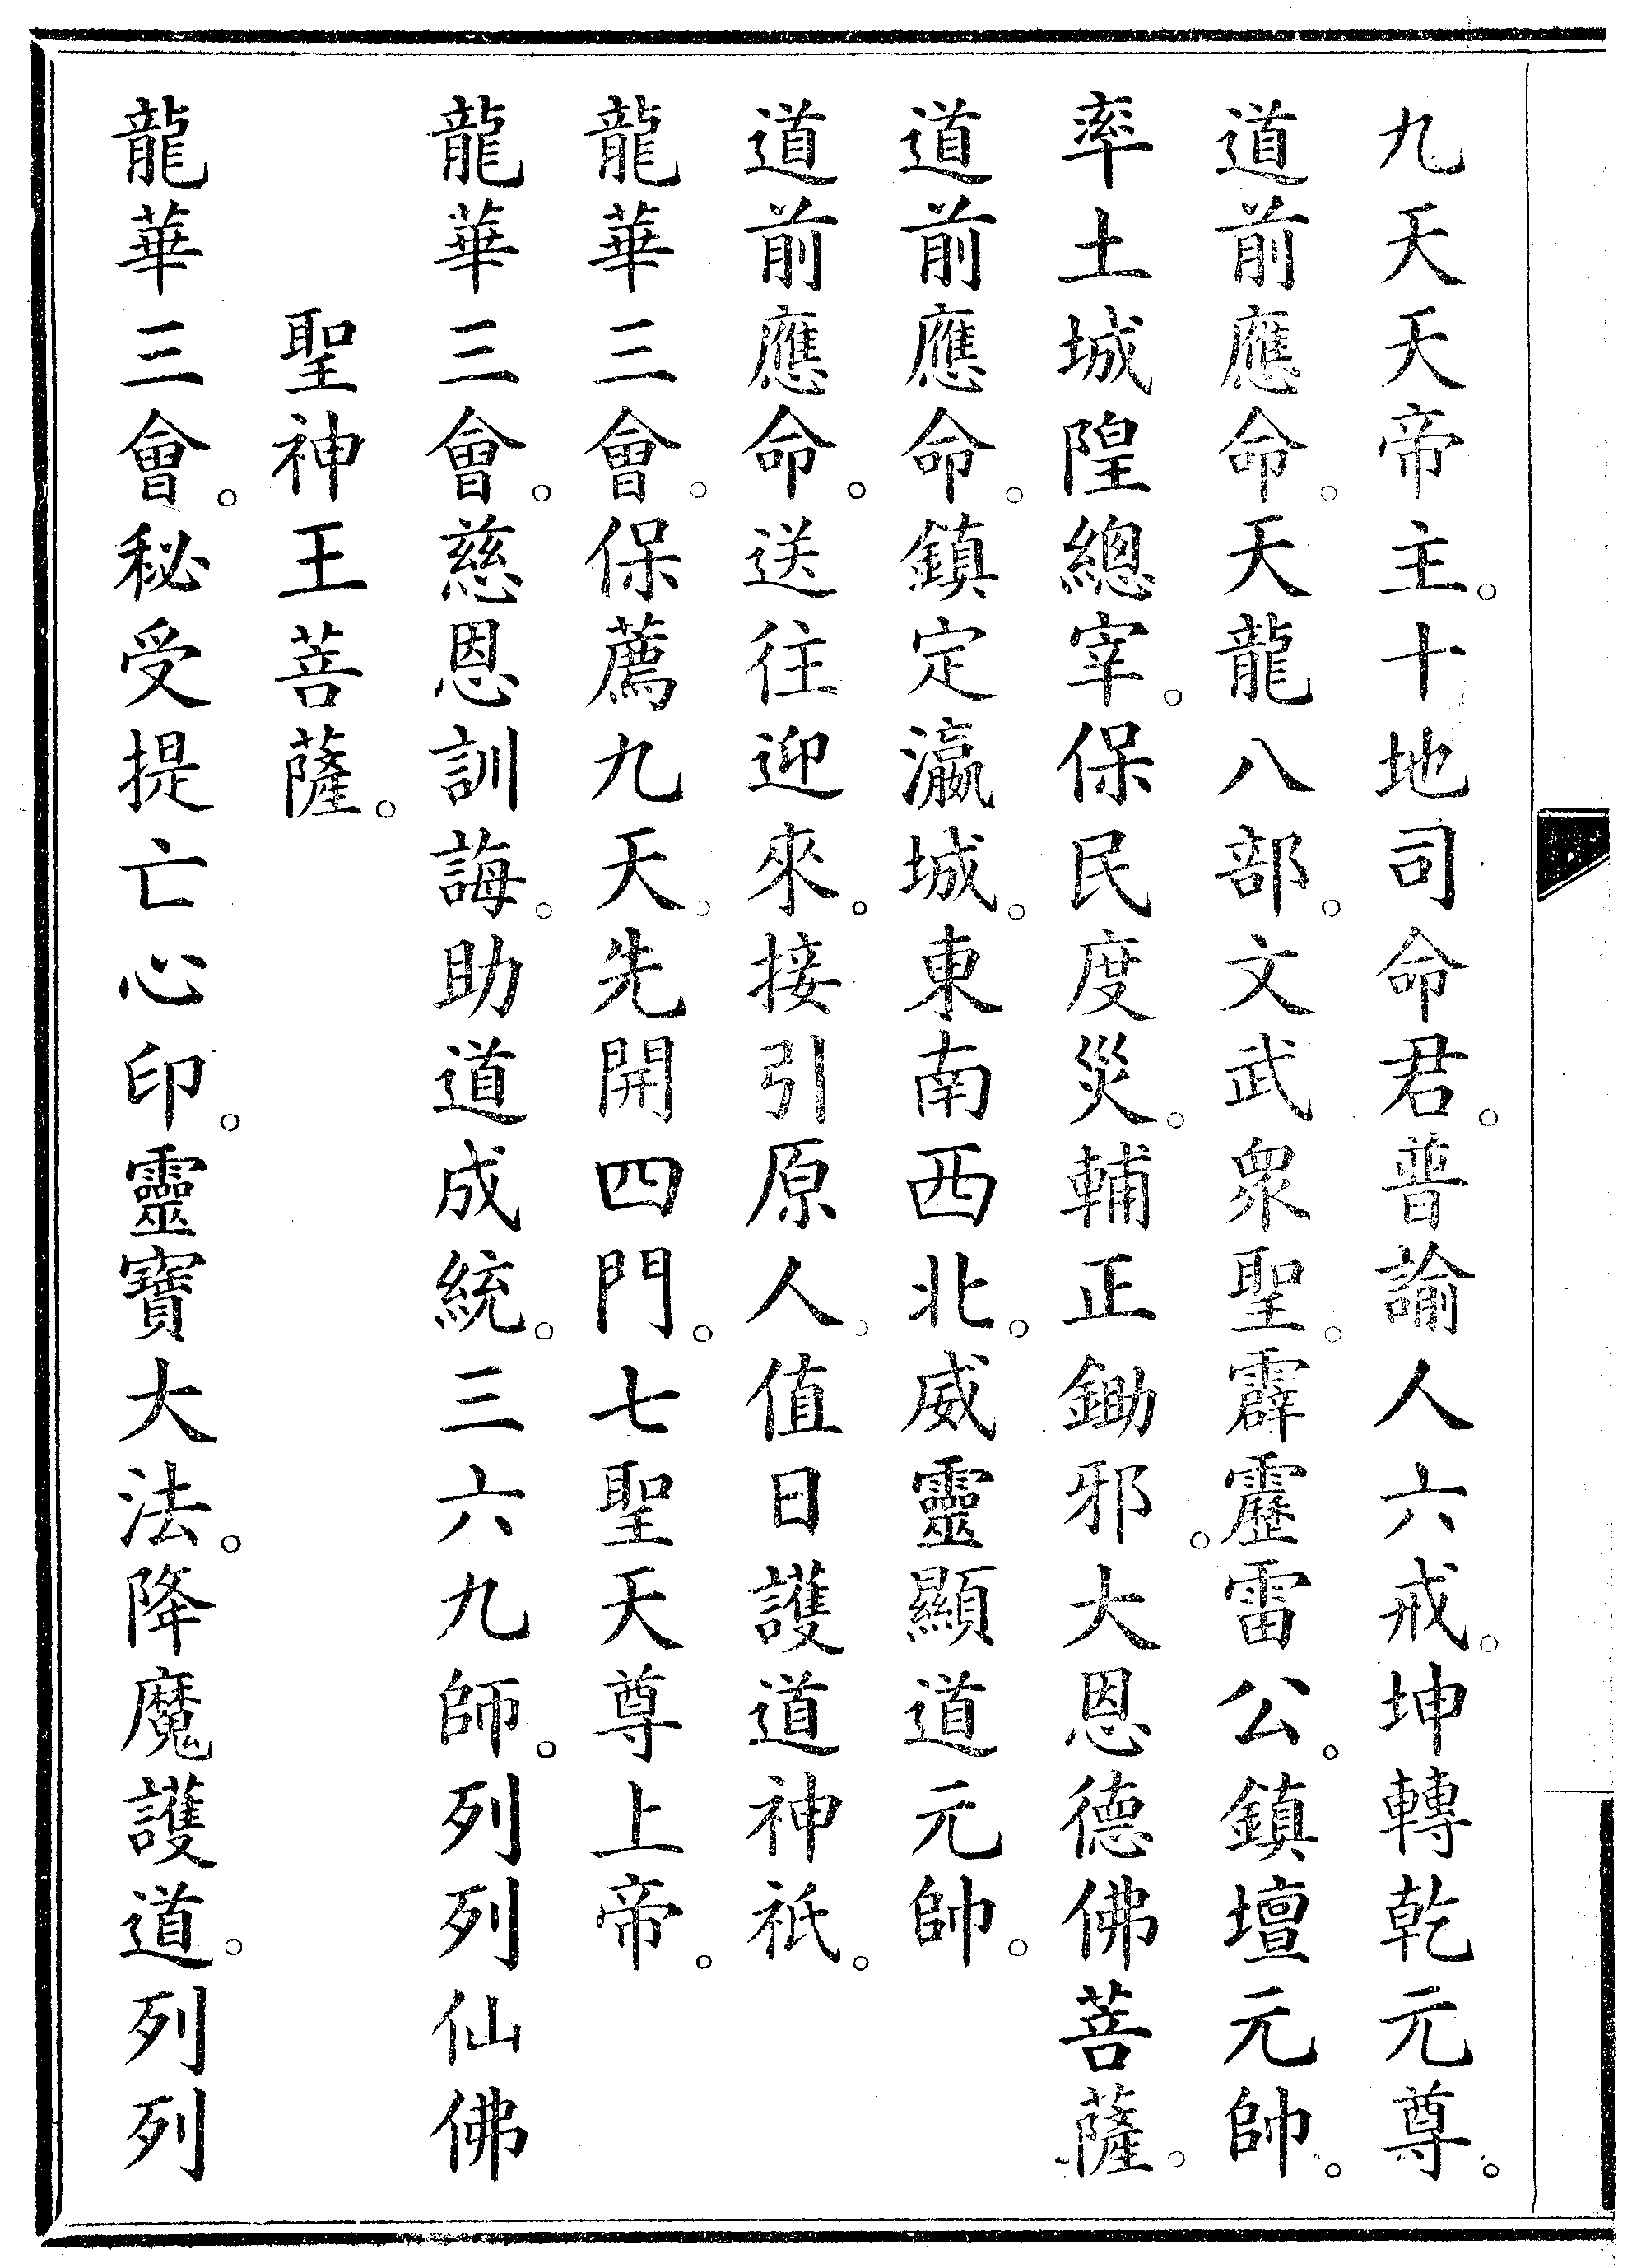 九天天帝主。十地司命君。普諭人六戒。坤轉乾元尊。
道前應命。天龍八部。文武眾聖。霹靂雷公。鎮壇元帥。
率土城隍總宰。保民度災。輔正鋤邪。大恩德佛菩薩。
道前應命。鎮定瀛城。東南西北。威靈顯道元帥。
道前應命。送往迎來。接引原人。值日護道神祇。
龍華三會。保薦九天。先開四門。七聖天尊上帝。
龍華三會。慈恩訓誨。助道成統。三六九師。列列仙佛
聖神王菩薩。
龍華三會。秘受提亡心印。靈寶大法。降魔護道。列列